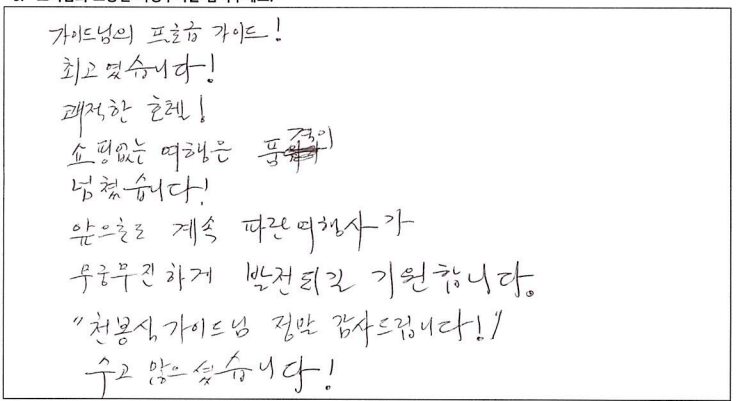 가이드님의 프로급 가이드!
최고였습니다!
쾌적한 호텔!
쇼핑없는 여행은 품격이
넘쳤습니다!
앞으로도 계속 파란여행사가
무궁무진하게 발전되길 기원합니다.
"천봉식가이드님 정말 감사드립니다!"
수고 많으셨습니다!